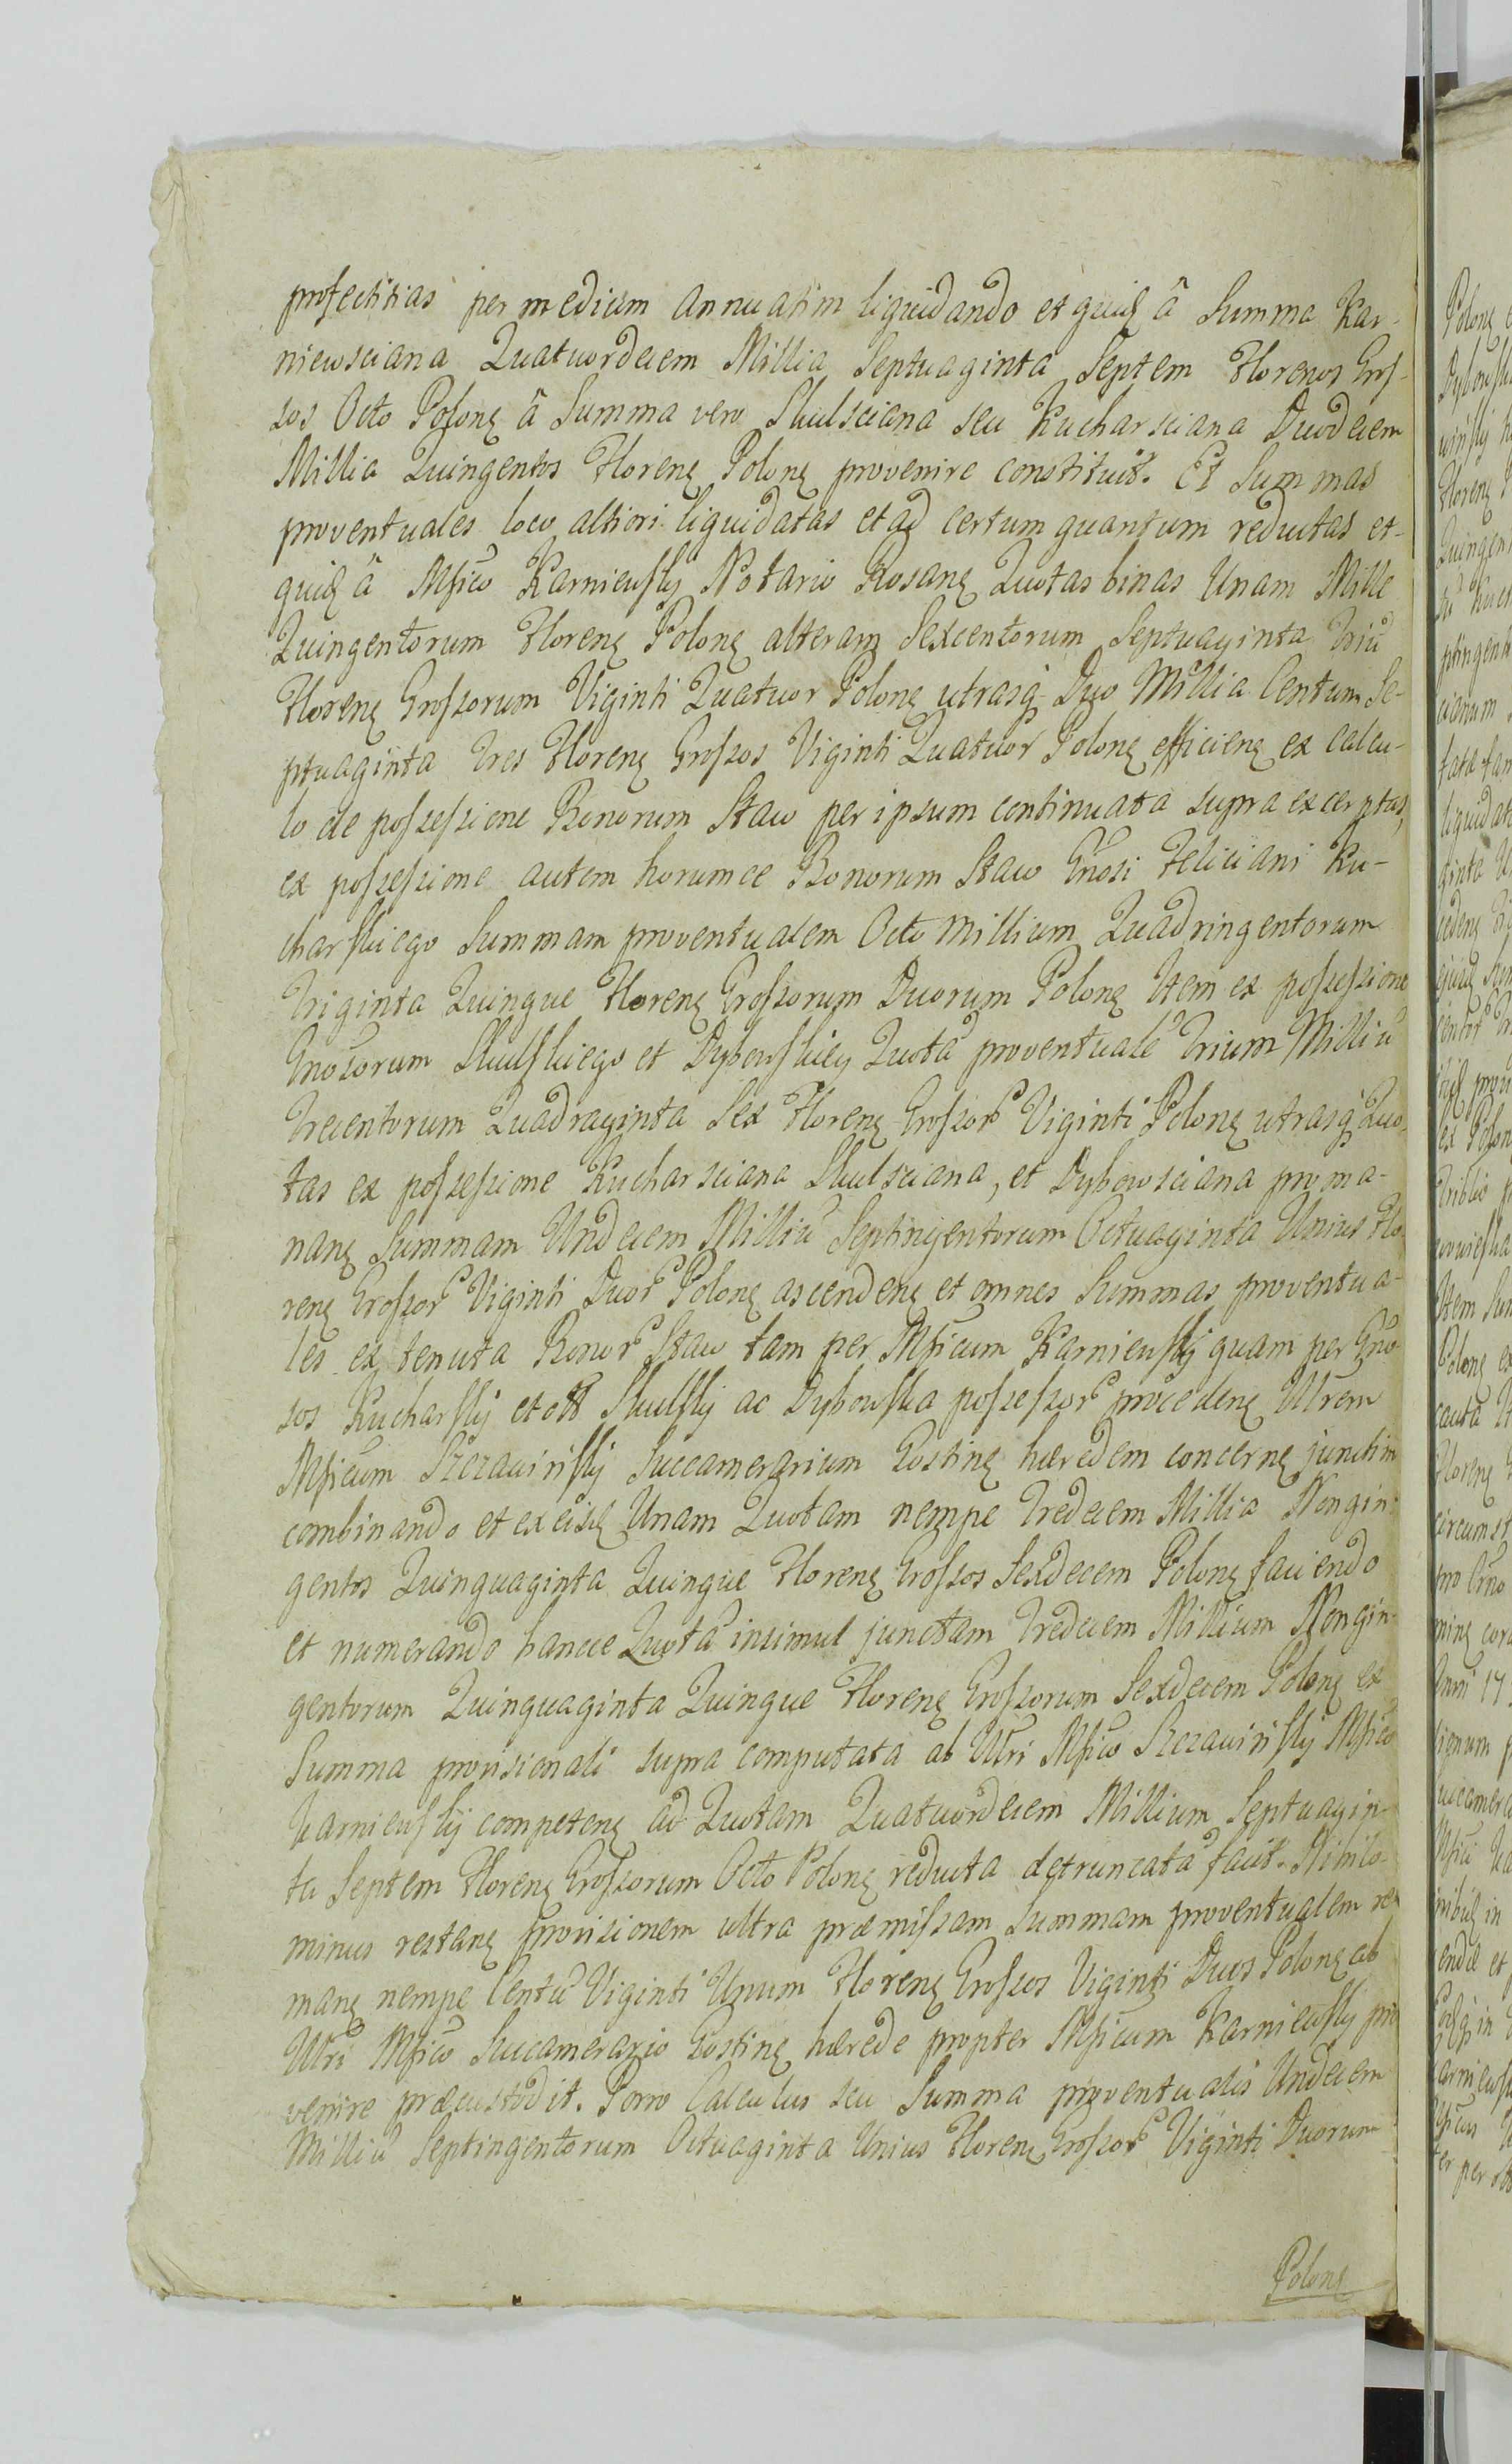 profectitias per medium annuatim liquidando et quidę â Summa Kar-
niewsciana Quatuordecem Millia Septuaginta Septem Florenos Gros-
sos Octo Polonę â Summa vero Skulsciana seu Kucharsciana Duodecem
Millia Quingentos Florenę Polonę provenire constituit. Et Summas
proventuales loco altiori liquidatas et ad certum quantum reductas et
quidę â Mfico Karniewskÿ Notario Rosanę Quotas binas Unam Mille
Quingentorum Florenę Polonę alteram Sexcentorum Septuaginta Triũ
Florenę Grossorum Viginti Quatuor Polonę utrasq Duo Millia Centum Se-
ptuaginta Tres Florenę Grossos Viginti Quatuor Polonę efficienę ex calcu-
lo de possessione Bonorum Staw per ipsum continuata supra excerptas,
ex possessione autem horumce Bonorum Staw Gnosi Feliciani Ku-
charskiego Summam proventualem Octo Millium Quadringentorum
Triginta Quinque Florenę Grossorum Duorum Polonę Item ex possessione
Gnosorum Skulskiego et Dybowskiey Quotã proventualẽ Trium Milliũ
Trecentorum Quadraginta Sex Florenę Grossor Viginti Polonę utrasq Quo-
tas ex possessione Kucharsciana Skulsciana, et Dybowsciana proma-
nanę Summam Undecem Milliũ Septingentorum Octuaginta Unius Flo-
renę Grossor Viginti Duor Polonę ascendenę et omnes Summas proventua-
les ex tenuta Bonor Staw tam per Mficum Karniewskÿ quam per Gno-
sos Kucharskÿ et Skulskÿ ac Dybowska possessor procedenę Illrem
Mficum Szczawińskÿ Succamerarium Gostinę hæredem concernę junctim
combinando et ex eisdę Unam Quotam nempe Tredecem Millia Nongin-
gentos Quinquaginta Quinque Florenę Grossos Sexdecem Polonę faciendo
et numerando hancce Quotã insimul junctam Tredecem Millium Nongin-
gentorum Quinquaginta Quinque Florenę Grossorum Sexdecem Polonę ex
Summa provisionali supra computata ab Illri Mfico Szczawińskÿ Mfico
Karniewskÿ competenę ad Quotam Quatuordecem Millium Septuagin-
ta Septem Florenę Grossorum Octo Polonę reducta detruncatã facit. Nihilo-
minus restanę provisionem ultra præmissam Summam proventualem re-
manę nempe Centũ Viginti Unum Florenę Grossos Viginti Duos Polonę ab
Illri Mfico Succamerario Gostinę hærede propter Mficum Karniewskÿ pro
venire præcustodit. Porro Calculus seu Summa proventualis Undecem
Milliũ Septingentorum Octuaginta Unius Florenę Grossor Viginti Duorum
Polonę